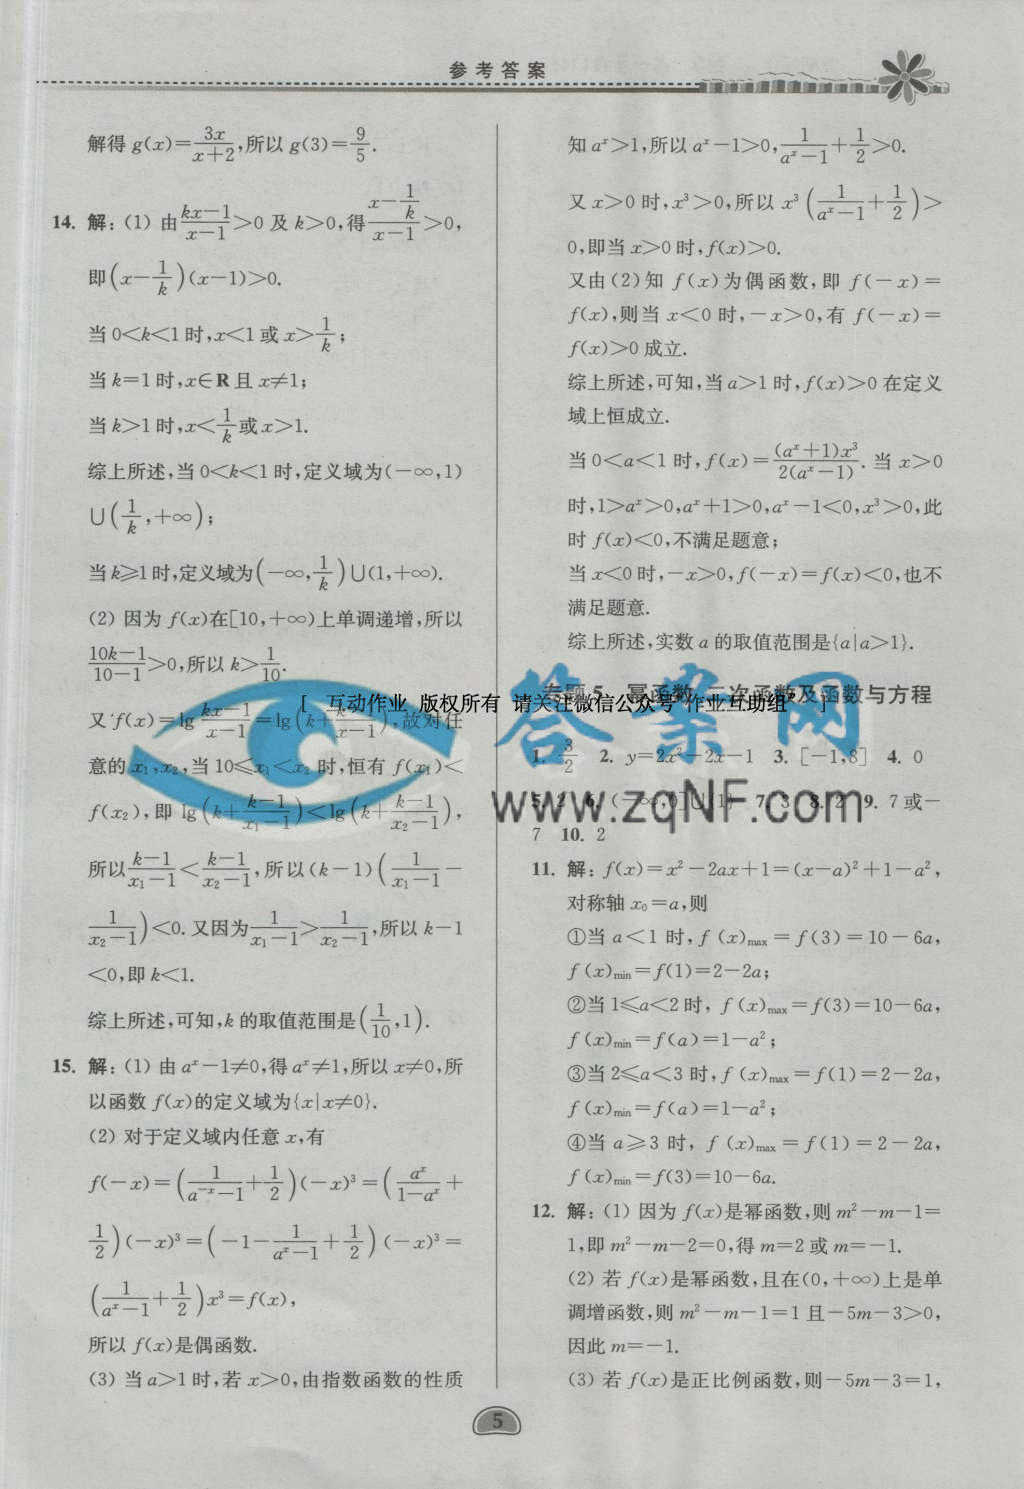 参考答案
解得 g(x)=3x/(x+2),所以 g(3)=9/5.
14. 解:(1) 由(kx-1)/(x-1)>0 及 k>0,得(x-1/k)/(x-1)>0,
即(x-1/k)(x-1)>0.
当 0<k<1 时,x<1 或 x>1/k;
当 k=1 时,x∈R 且 x≠1;
当 k>1 时,x<1/k 或 x>1.
综上所述,当 0<k<1 时,定义域为(-∞,1)
∪(1/k,+∞);
当 k≥1 时,定义域为(-∞,1/k)∪(1,+∞).
(2) 因为 f(x)在[10,+∞)上单调递增,所以
(10k-1)/(10-1)>0,所以 k>1/10.
又 f(x)=lg (kx-1)/(x-1)=lg(k+(k-1)/(x-1)),故对任
意的 x₁,x₂,当 10≤x₁<x₂ 时,恒有 f(x₁)<
f(x₂),即 lg(k+(k-1)/(x₁-1))<lg(k+(k-1)/(x₂-1)),
所以(k-1)/(x₁-1)<(k-1)/(x₂-1),所以(k-1)(1/(x₁-1)-
1/(x₂-1))<0.又因为1/(x₁-1)>1/(x₂-1),所以 k-1
<0,即 k<1.
综上所述,可知,k 的取值范围是(1/10,1).
15. 解:(1) 由 aˣ-1≠0,得 aˣ≠1,所以 x≠0,所
以函数 f(x)的定义域为{x|x≠0}.
(2) 对于定义域内任意 x,有
f(-x)=(1/(a⁻ˣ-1)+1/2)(-x)³=(aˣ/(1-aˣ)+
1/2)(-x)³=(-1-1/(aˣ-1)+1/2)(-x)³=
(1/(aˣ-1)+1/2)x³=f(x),
所以 f(x)是偶函数.
(3) 当 a>1 时,若 x>0,由指数函数的性质
知 aˣ>1,所以 aˣ-1>0,1/(aˣ-1)+1/2>0.
又 x>0 时,x³>0,所以 x³(1/(aˣ-1)+1/2)>
0,即当 x>0 时,f(x)>0.
又由(2)知 f(x)为偶函数,即 f(-x)=
f(x),则当 x<0 时,-x>0,有 f(-x)=
f(x)>0 成立.
综上所述,可知,当 a>1 时,f(x)>0 在定义
域上恒成立.
当 0<a<1 时,f(x)=(aˣ+1)x³/2(aˣ-1).当 x>0
时,1>aˣ>0,aˣ+1>0,aˣ-1<0,x³>0,此
时 f(x)<0,不满足题意;
当 x<0 时,-x>0,f(-x)=f(x)<0,也不
满足题意.
综上所述,实数 a 的取值范围是{a|a>1}.
专题 5 幂函数、二次函数及函数与方程
[ 互动作业 版权所有 请关注微信公众号"作业互助组" ]
答案网
www.zqNF.com
1. 3/2 2. y=2x²-2x-1 3. [-1,8] 4. 0
6. (-∞,0]∪{1} 7. 3 8. 2 9. 7 或-
7 10. 2
11. 解:f(x)=x²-2ax+1=(x-a)²+1-a²,
对称轴 x₀=a,则
①当 a<1 时,f(x)max=f(3)=10-6a,
f(x)min=f(1)=2-2a;
②当 1≤a<2 时,f(x)max=f(3)=10-6a,
f(x)min=f(a)=1-a²;
③当 2≤a<3 时,f(x)max=f(1)=2-2a,
f(x)min=f(a)=1-a²;
④当 a≥3 时,f(x)max=f(1)=2-2a,
f(x)min=f(3)=10-6a.
12. 解:(1) 因为 f(x)是幂函数,则 m²-m-1=
1,即 m²-m-2=0,得 m=2 或 m=-1.
(2) 若 f(x)是幂函数,且在(0,+∞)上是单
调增函数,则 m²-m-1=1 且-5m-3>0,
因此 m=-1.
(3) 若 f(x)是正比例函数,则-5m-3=1,
5